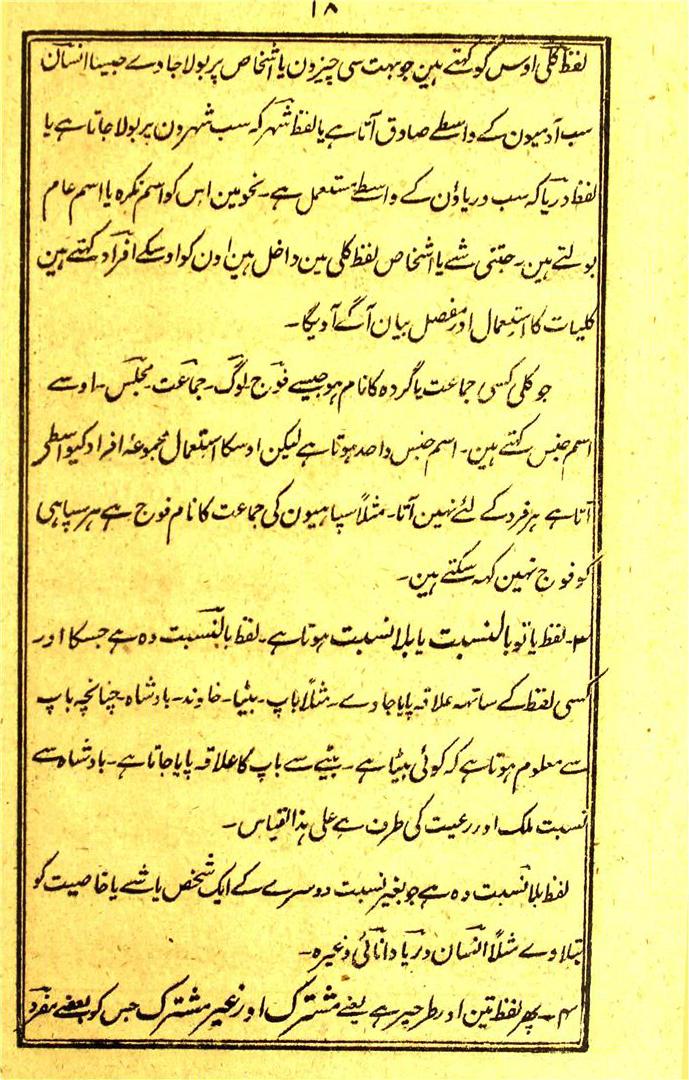 ۱۸
لفظ کلی اوس کو کہتے ہین جو بہت سی چیزون یا اشخاص پر بولا جاوے جیسا انسان
سب آدمیون کے واسطے صادق آتا ہے یا لفظ شہر کہ سب شہرون پر بولا جاتا ہے یا
لفظ دریا کہ سب دریاؤن کے واسطے مستعمل ہے۔ نحو مین اس کو اسم نکرہ یا اسم عام
بولتے ہین۔ جتنی شے یا اشخاص لفظ کلی مین داخل ہین اون کو اوسکے افراد کہتے ہین
کلیات کا استعمال اور مفصل بیان آگے آویگا۔
جو کلی کسی جماعت یا گروہ کا نام ہو جیسے فوج۔ لوگ۔ جماعت۔ مجلس۔ اوسے
اسم جنس کہتے ہین۔ اسم جنس واحد ہوتا ہے لیکن اوسکا استعمال مجموعہ افراد کیواسطے
آتا ہے ہر فرد کے لئے نہین آتا۔ مثلاً سپاہیون کی جماعت کا نام فوج ہے ہر سپاہی
کو فوج نہین کہہ سکتے ہین۔
۳۔ لفظ یا تو بالنسبت یا بلا نسبت ہوتا ہے۔ لفظ بالنسبت وہ ہے جسکا اور
کسی لفظ کے ساتھہ علاقہ پایا جاوے۔ مثلاً باپ۔ بیٹا۔ خاوند۔ بادشاہ۔ چنانچہ باپ
سے معلوم ہوتا ہے کہ کوئی بیٹا ہے۔ بیٹے سے باپ کا علاقہ پایا جاتا ہے۔ بادشاہ سے
نسبت ملک اور رعیت کی طرف ہے علی ہذا القیاس۔
لفظ بلا نسبت وہ ہے جو بغیر نسبت دوسرے کے ایک شخص یا شے یا خاصیت کو
بتلاوے مثلاً انسان دریا دانائی وغیرہ۔
۴۔ پھر لفظ تین اور طرحپر ہے یعنے مشترک اور غیر مشترک جس کو بعضے منفرد